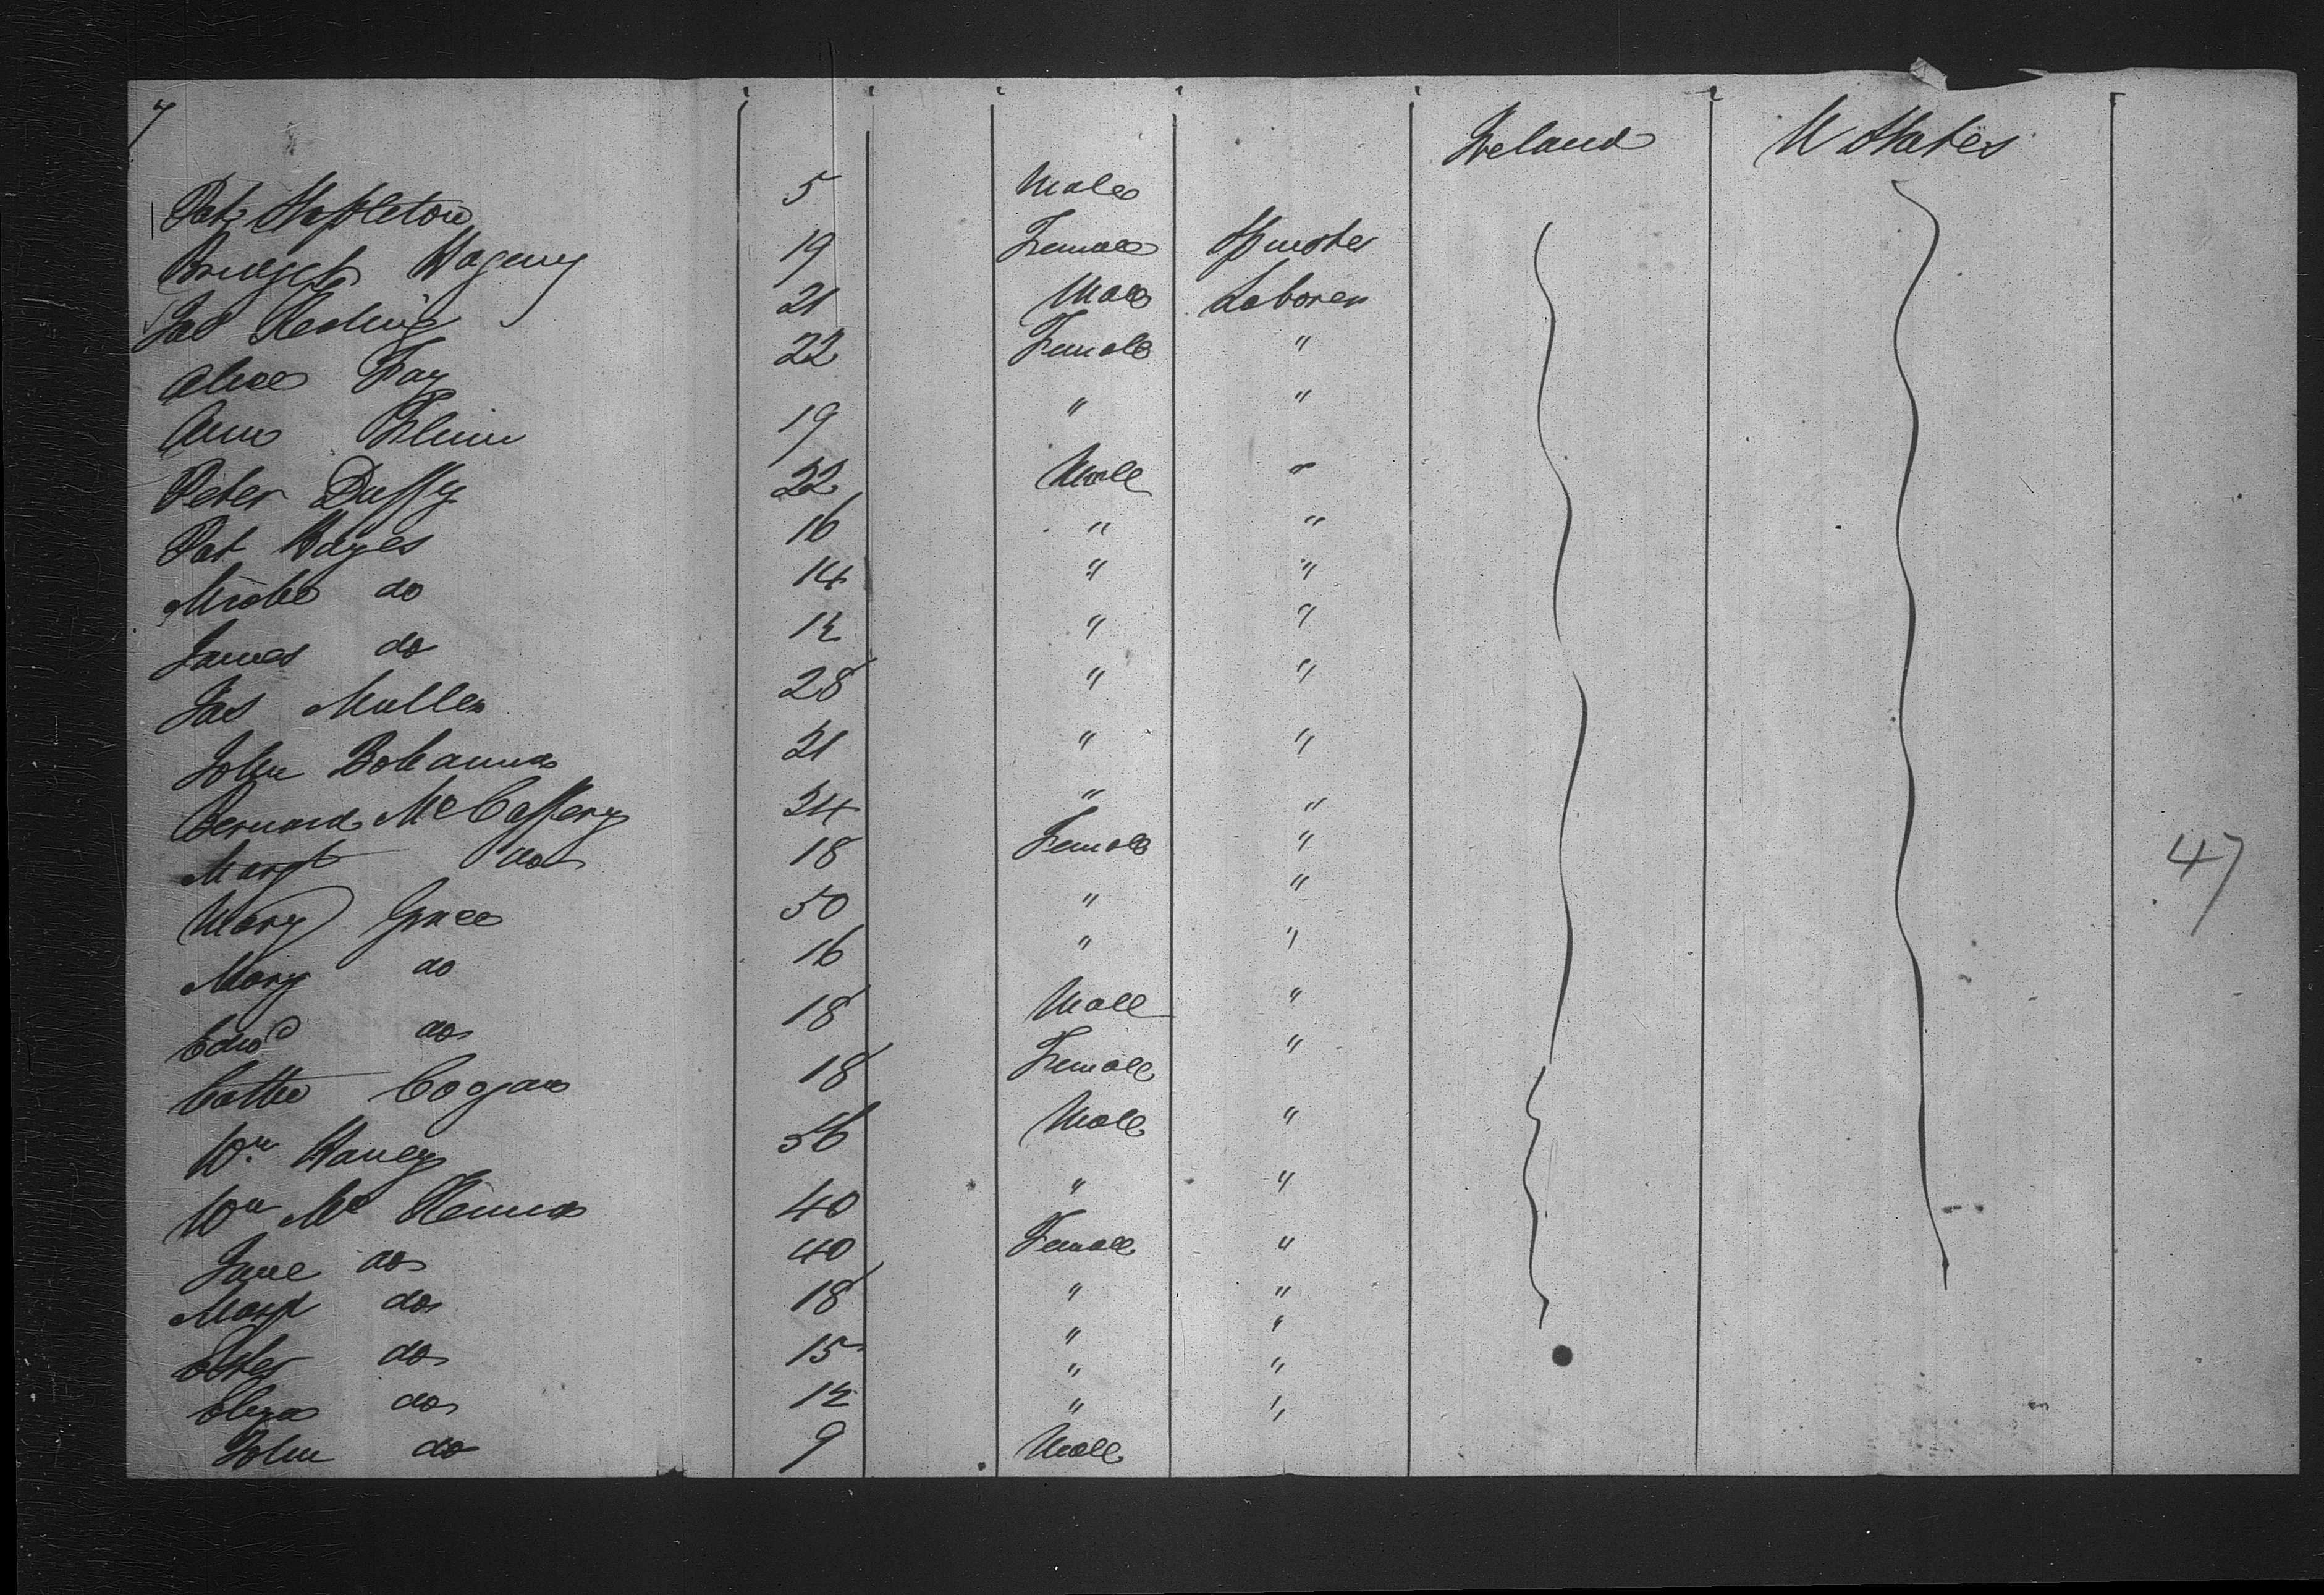 7 Ireland U States
Pat Stapleton 5 Male
Bridget Hageny 19 Female Spinster
Jas Keating 21 Male Laborer
Alice Fay 22 Female "
Ann Flinn 19 " "
Peter Duffy 22 Male "
Pat Hayes 16 " "
Miche do 14 " "
James do 12 " "
Jas Mullen 28 " "
John Bohanna 21 " "
Bernard McCaffery 24 " "
Margt do 18 Female "
Mary Grace 50 " "
Mary do 16 " "
Edwd do 18 Male "
Cathe Cogan 18 Female "
Wm Haney 56 Male "
Wm McKenna 40 " "
Jane do 40 Female "
Margt do 18 " "
Ester do 15 " "
Eliza do 12 " "
John do 9 Male
47